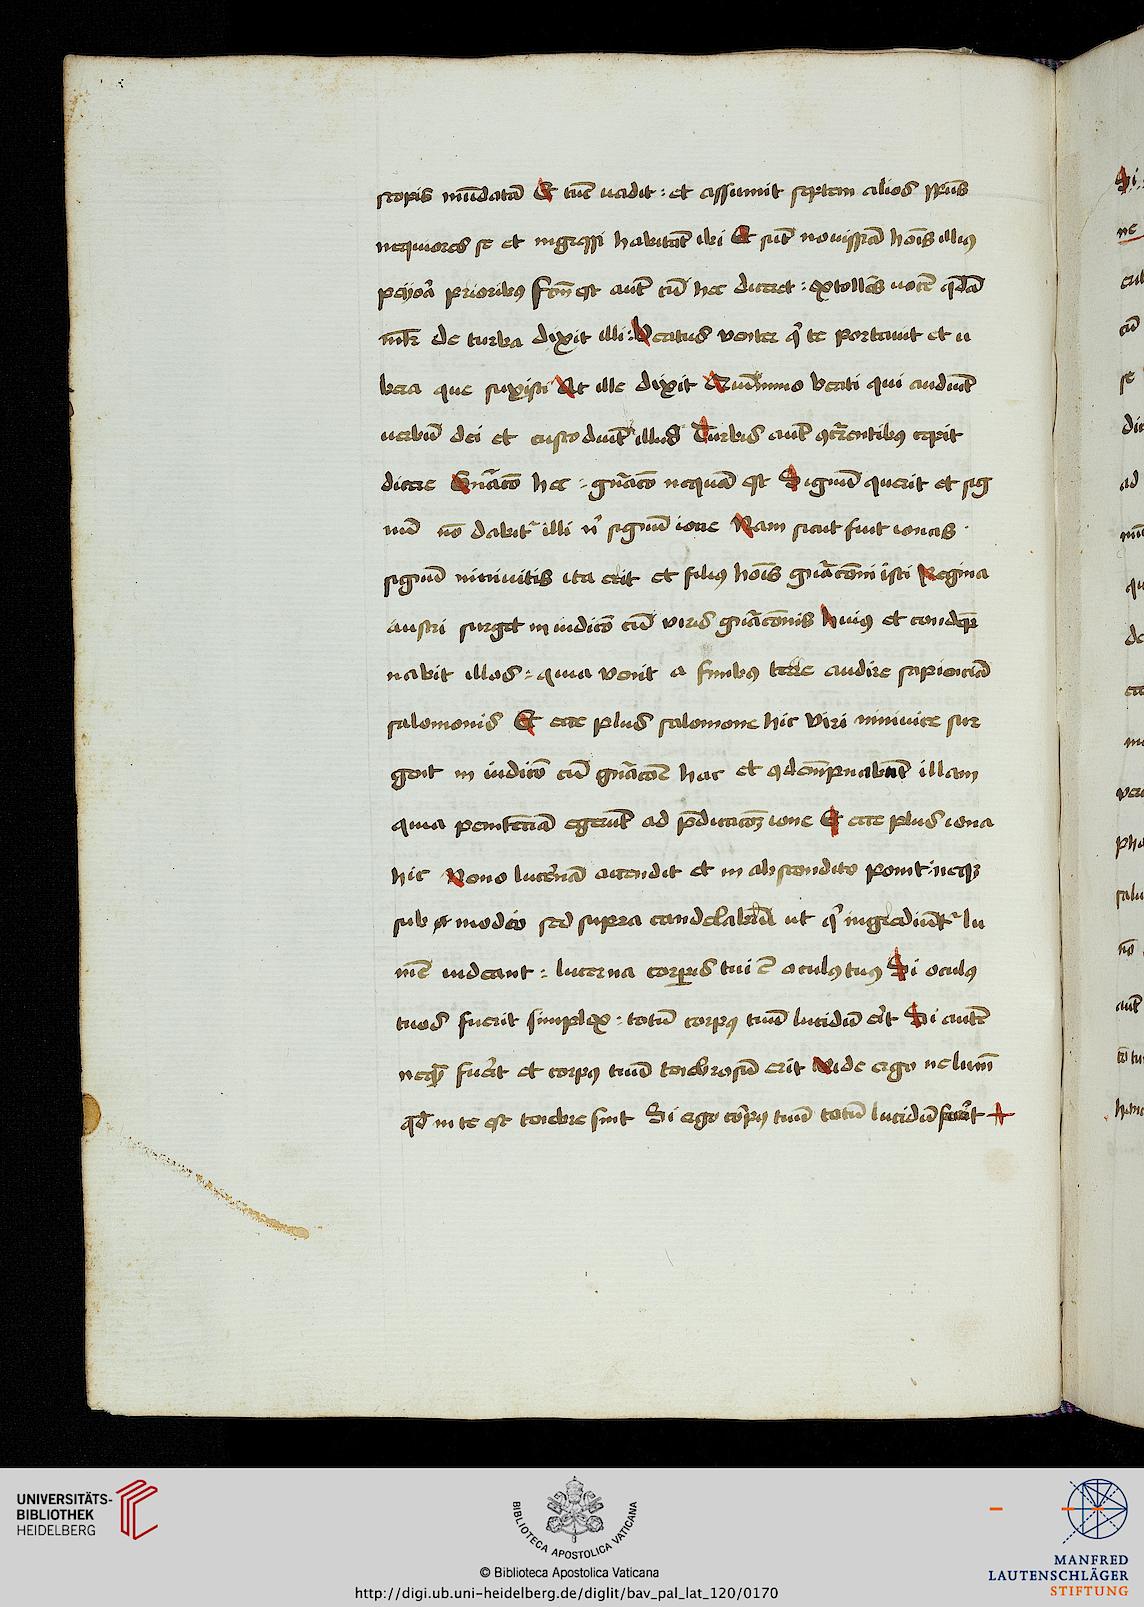 scopis mūdatā Et tūc uadit : et assumit septem alios sp̄us
nequiores se et ingressi habitāt ibi Et sūt nouissīa hoīs illiꝰ
peyora prioribꝰ Fc̄m est aūt cū hec diceret : extollēs uocē q̄dā
ml̄r de turba dixit illi : Beatus venter q̄ te portauit et u
bera que suxisti At ille dixit Quīmmo beati qui audiūt
uerbū dei et custodiūt illud Turbis aūt ꝯcur̄entibꝰ cepit
dicere Gn̄aco hec : gn̄aco nequā est Signū querit et sig
nū nō dabit᷑ illi n̄ signū ione Nam sicut fuit ionas ·
signū niniuitis ita erit et filiꝰ hoīs gn̄acōni isti Regina
austri surget in iudicō cū viris gn̄acōnis huiꝰ et condep̄
nabit illos : quia venit a finibꝰ terre audire sapienciā
salomonis Et ecce plus salomone hic Viri niniuite sur
gent in iudicō cū gn̄acōe hac et ꝯdemp̄nabūt illam
quia penitēciā egerūt ad p̄dicacōꝫ ione Et ecce plus iona
hic Nemo lucernā accendit et in abscondito ponit : neqꝫ
sub modio sed supra candelabrū ut q̄ ingrediūt᷑ lu
mē uideant : lucerna corporis tui ē oculꝰ tuꝰ Si oculꝰ
tuus fuerit simplex : totū corpꝰ tuū lucidū erit Si autē
neq̄ fuerit et corpꝰ tuū tenebrosū erit Vide ergo ne lumē
qd̄ in te est tenebre sint Si ergo corpꝰ tuū totū lucidū fuerit
UNIVERSITÄTS-
BIBLIOTHEK
HEIDELBERG
BIBLIOTECA APOSTOLICA VATICANA
© Biblioteca Apostolica Vaticana
http://digi.ub.uni-heidelberg.de/diglit/bav_pal_lat_120/0170
MANFRED
LAUTENSCHLÄGER
STIFTUNG